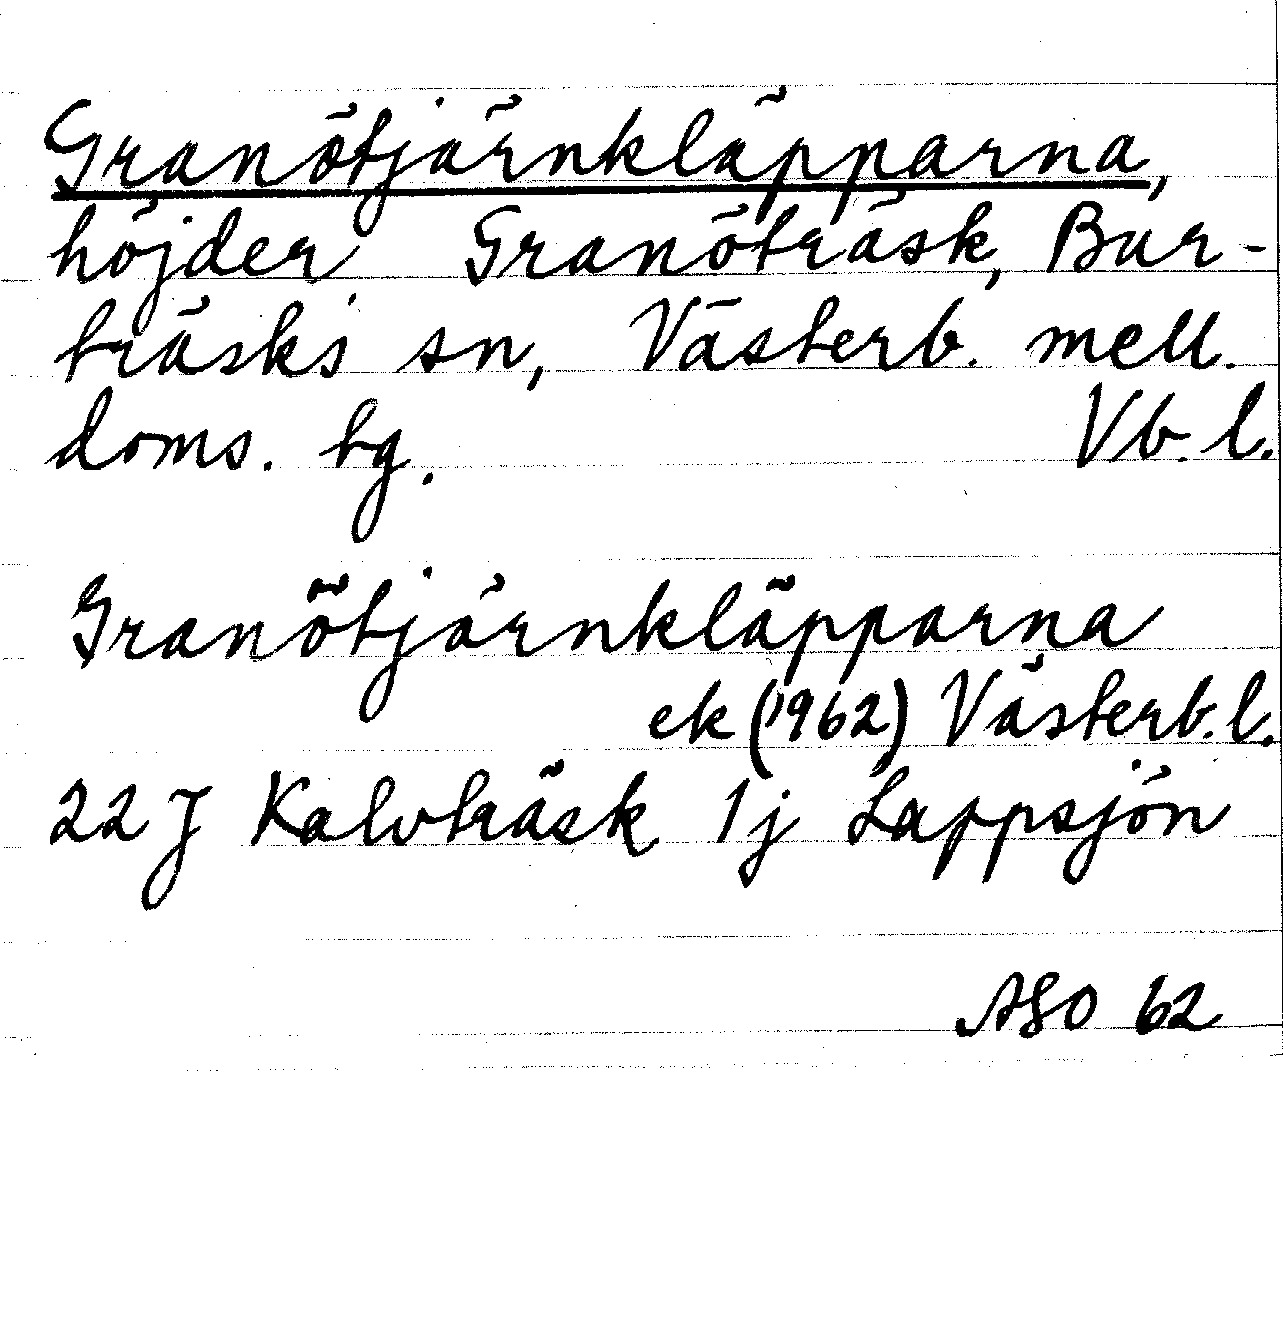 Granötjärnkläpparna,
höjder Granöträsk, Bur-
träsks sn, Västerb. mell.
doms. tg. Vb. l.
Granötjärnkläpparna
ek (1962) Västerb. l.
22 J Kalvträsk 1j Lappsjön
ASO 62